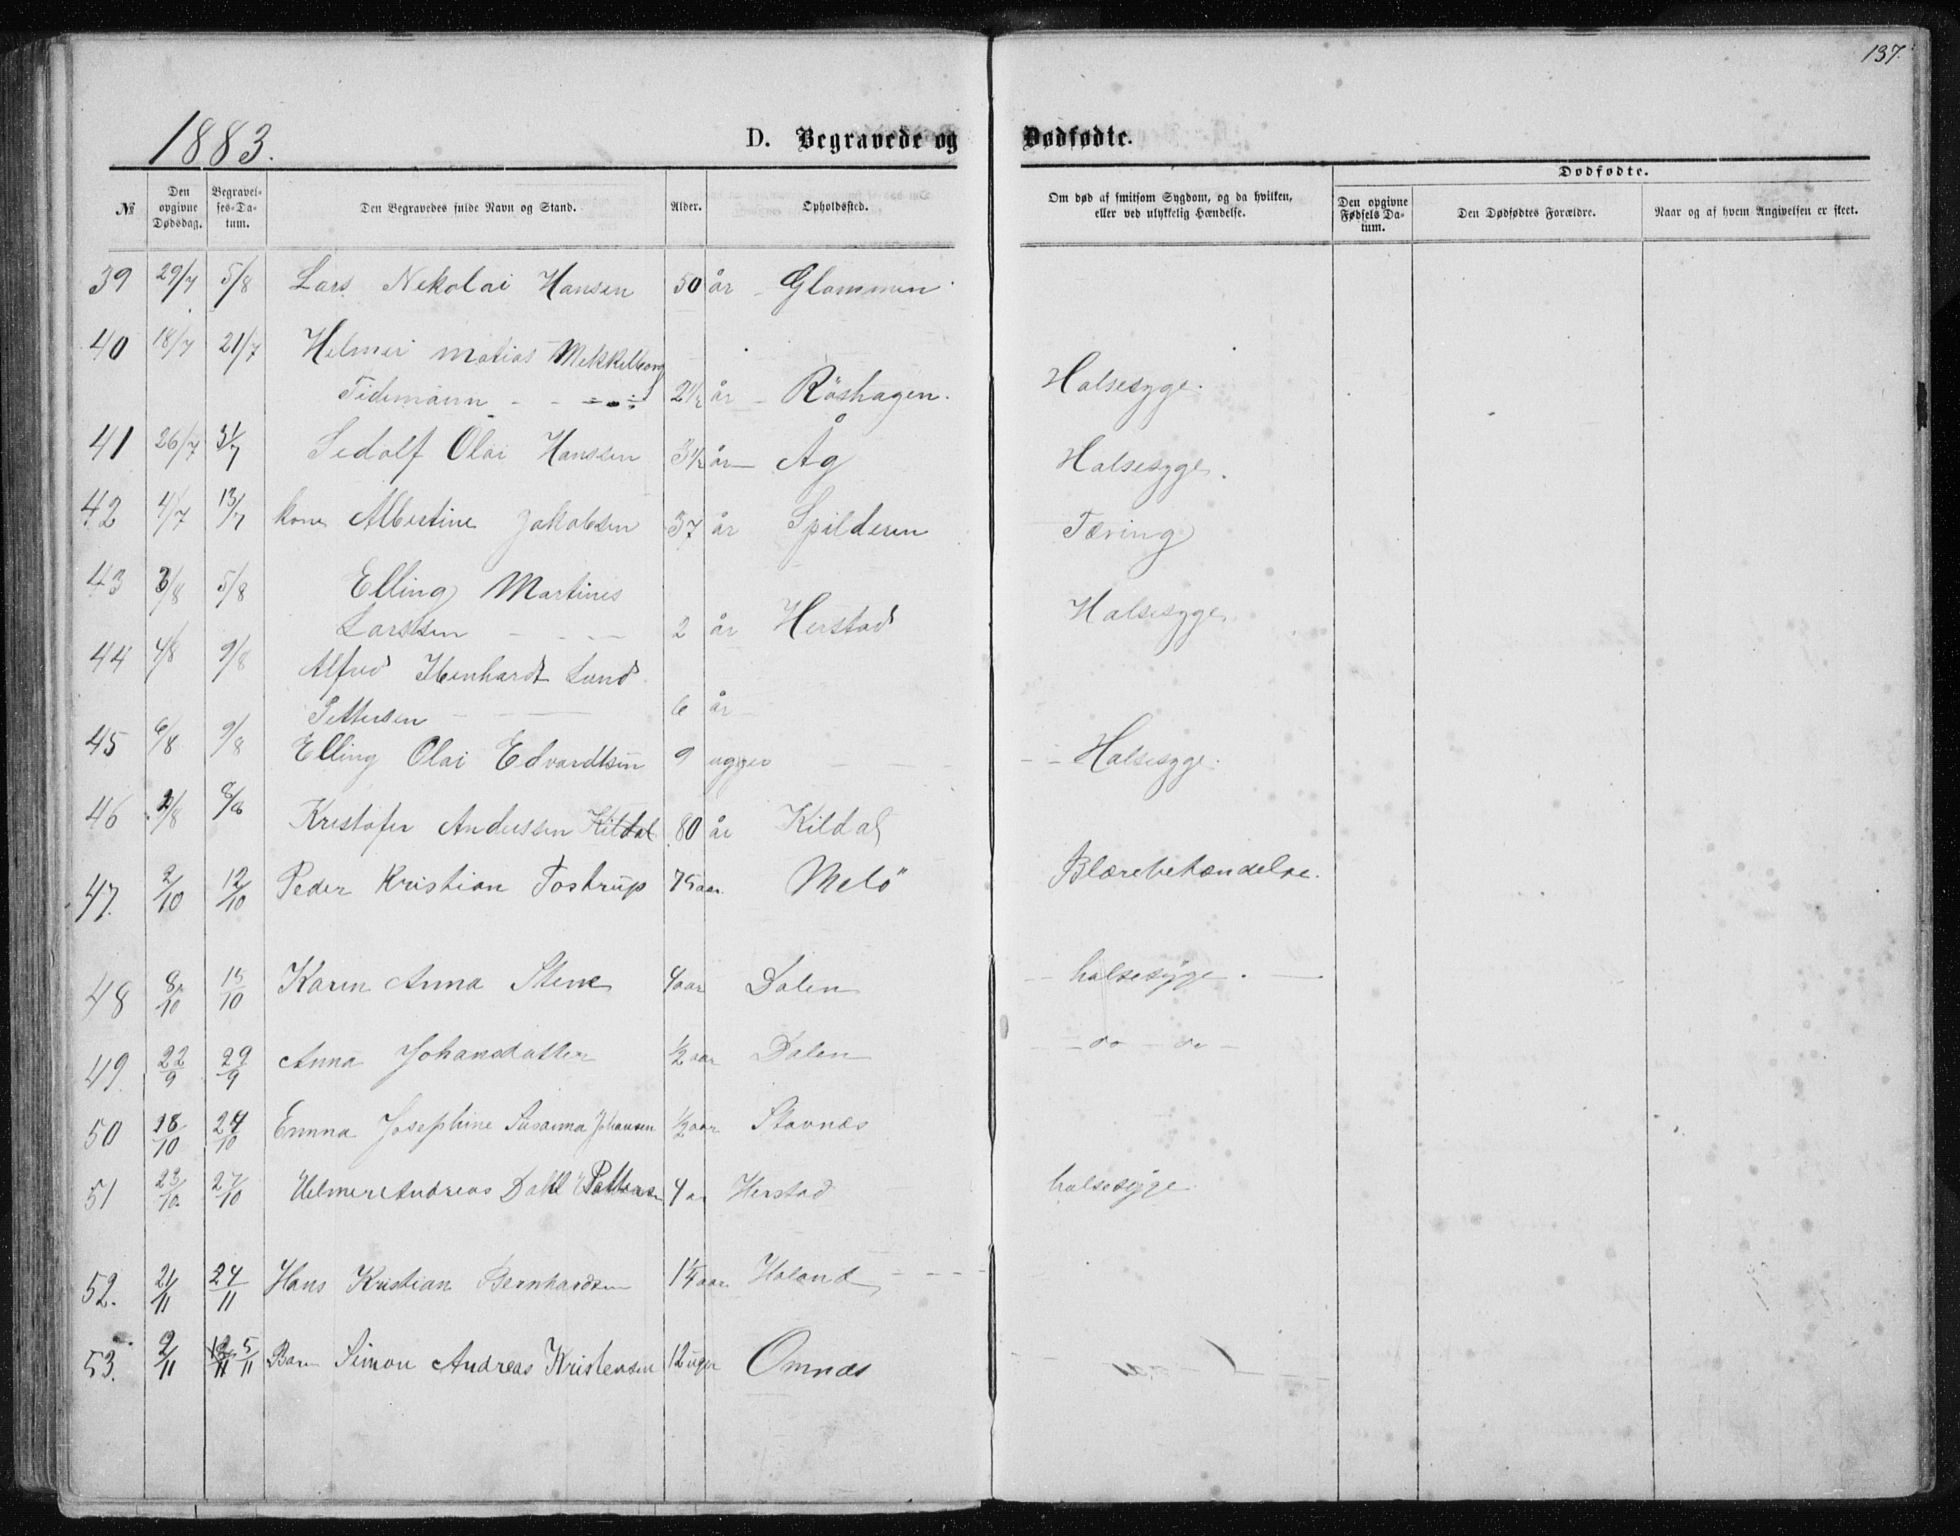 137.
1883.
D. Begravede og Dødfødte.
№
Den opgivne Dødsdag.
Begravel-ses-Da-tum.
Den Begravedes fulde Navn og Stand.
Alder.
Opholdssted.
Om død af smitsom Sygdom, og da hvilken, eller ved ulykkelig Hændelse.
Dødfødte.
Den opgivne Fødsels Da-tum.
Den Dødfødtes Forældre.
Naar og af hvem Angivelsen er skeet.
39 29/7 5/8 Lars Nekolai Hansen 50 år - Glommen
40 18/7 21/7 Helmer matias Mekkelborg
Tidemann - - 2 1/2 år - Röshagen. Halsesyge.
41 26/7 31/7 Sedolf Olai Hanssen 3 1/2 år - Åg Halsesyge.
42 4/7 13/7 kone Albertine Jakobsen 37 år Spilderen Tæring
43 3/8 5/8 Elling Martines
Larssen - - - 2 år Herstad Halsesyge
44 4/8 9/8 Alfred Ibenhardt Lund
Pettersen - - 6 år
45 6/8 9/8 Elling Olai Edvardtsen 9 ugger - - - - Halsesyge.
46 2/8 8/8 Kristofer Anderssen Kildal 80 år Kildal
47. 2/10 12/10 Peder Kristian Tostrup 75 aar. Melö Blærebetændelse.
48 8/10 15/10 Karen Anna Stene 4 aar Dalen - halsesyge. -
49. 22/9 29/9 Anna Johansdatter 1/2 aar Dalen - do - do -
50 18/10 24/10 Emma Josephine Susanna Johansen 1/2 aar Stavnes
51 23/10. 27/10 Helmer Andreas Dahl Petters 4 ar Herstad halsesyge.
52. 21/11 24/11 Hans Kristian Bernhardsen 1 1/4 aar Haland - - -
53. 2/11 5/11 Barn Simon Andreas Kristensen 12 uger Omnæs